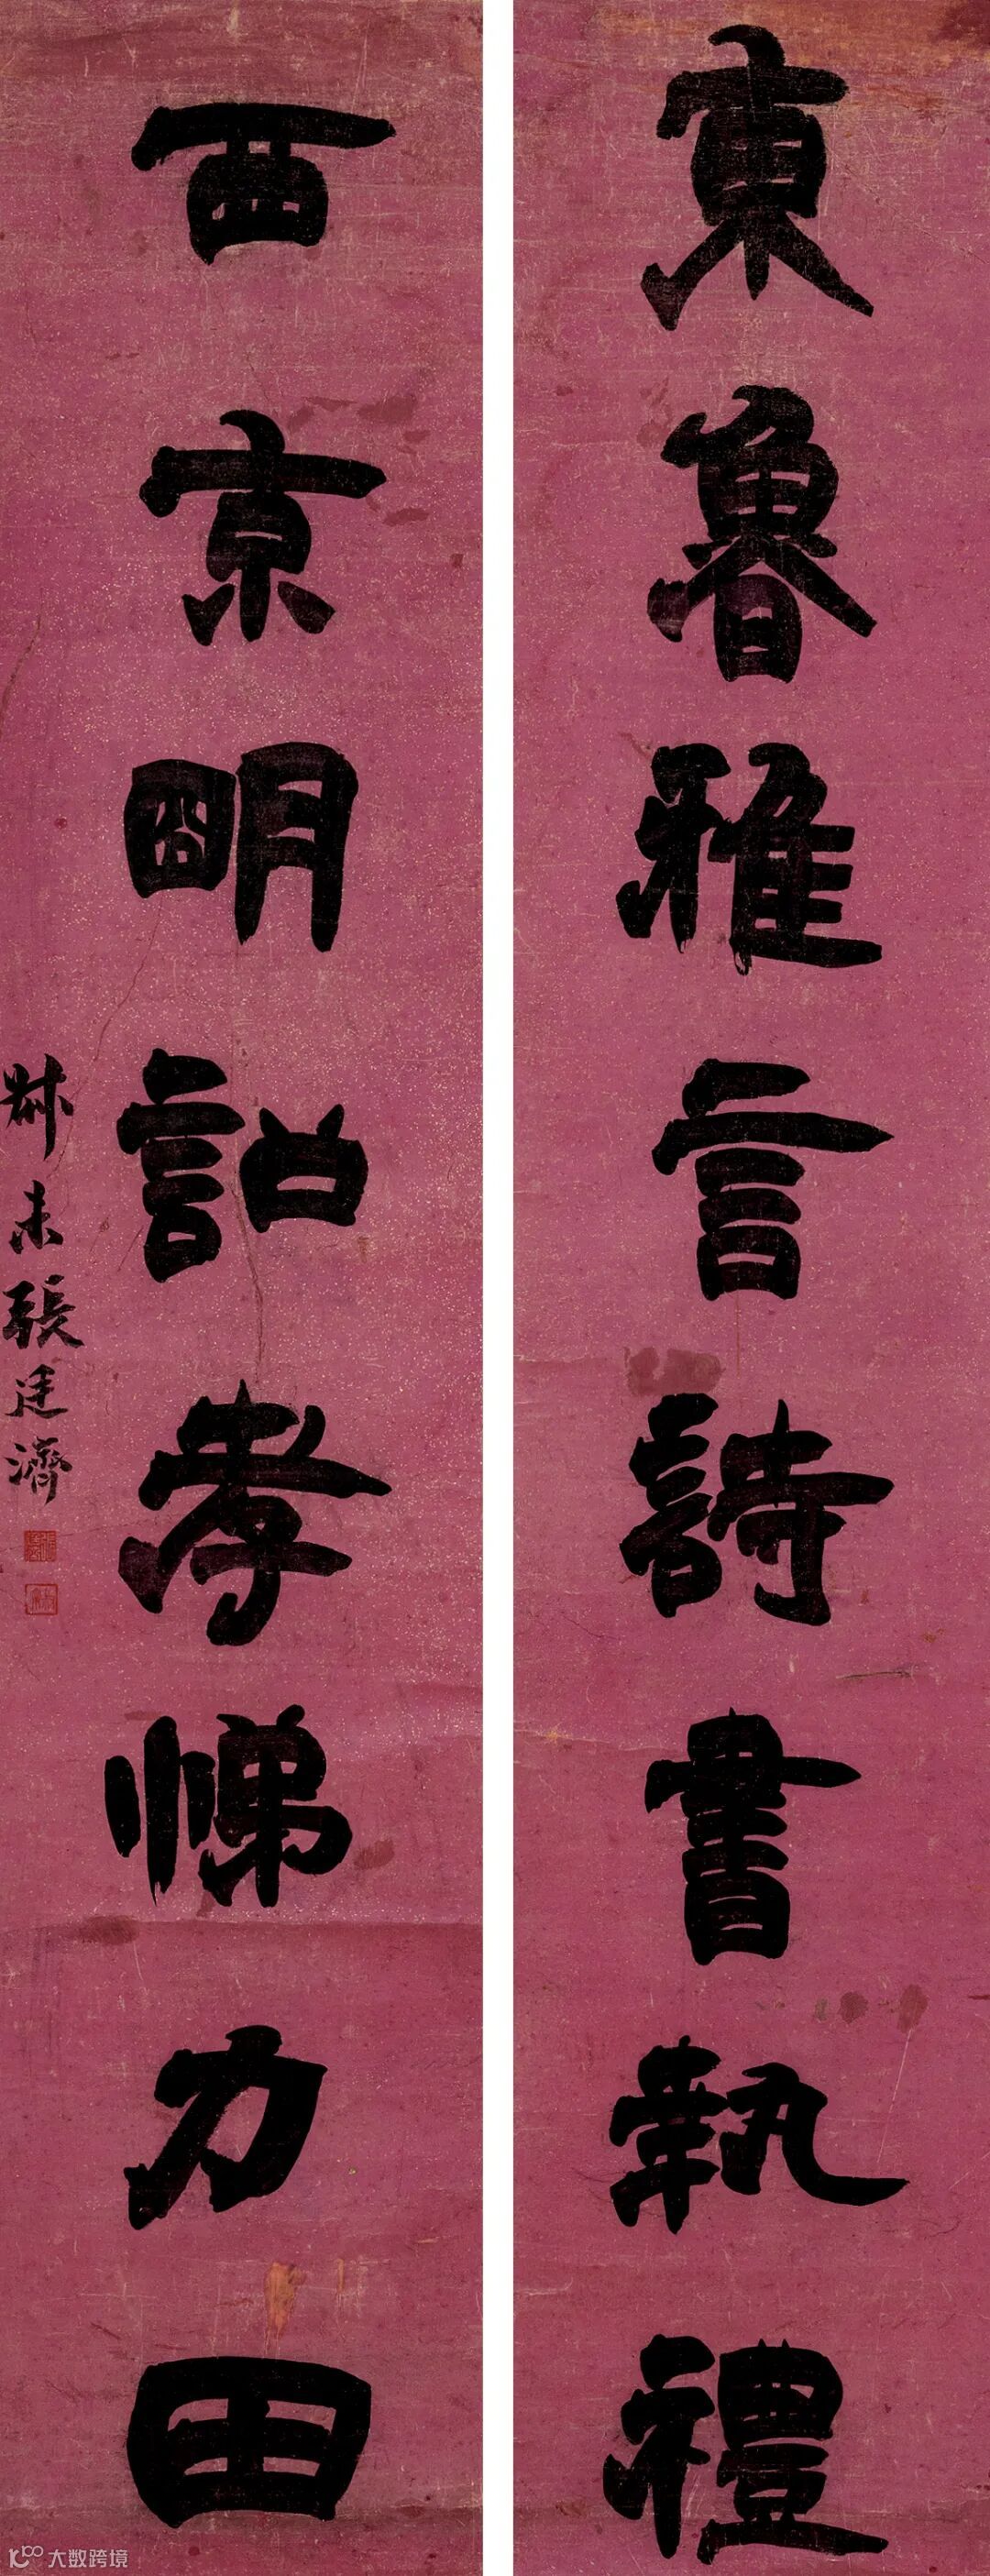 東魯雅言詩書執禮
西京朙詔孝悌力田
叔未張廷濟
大数跨境